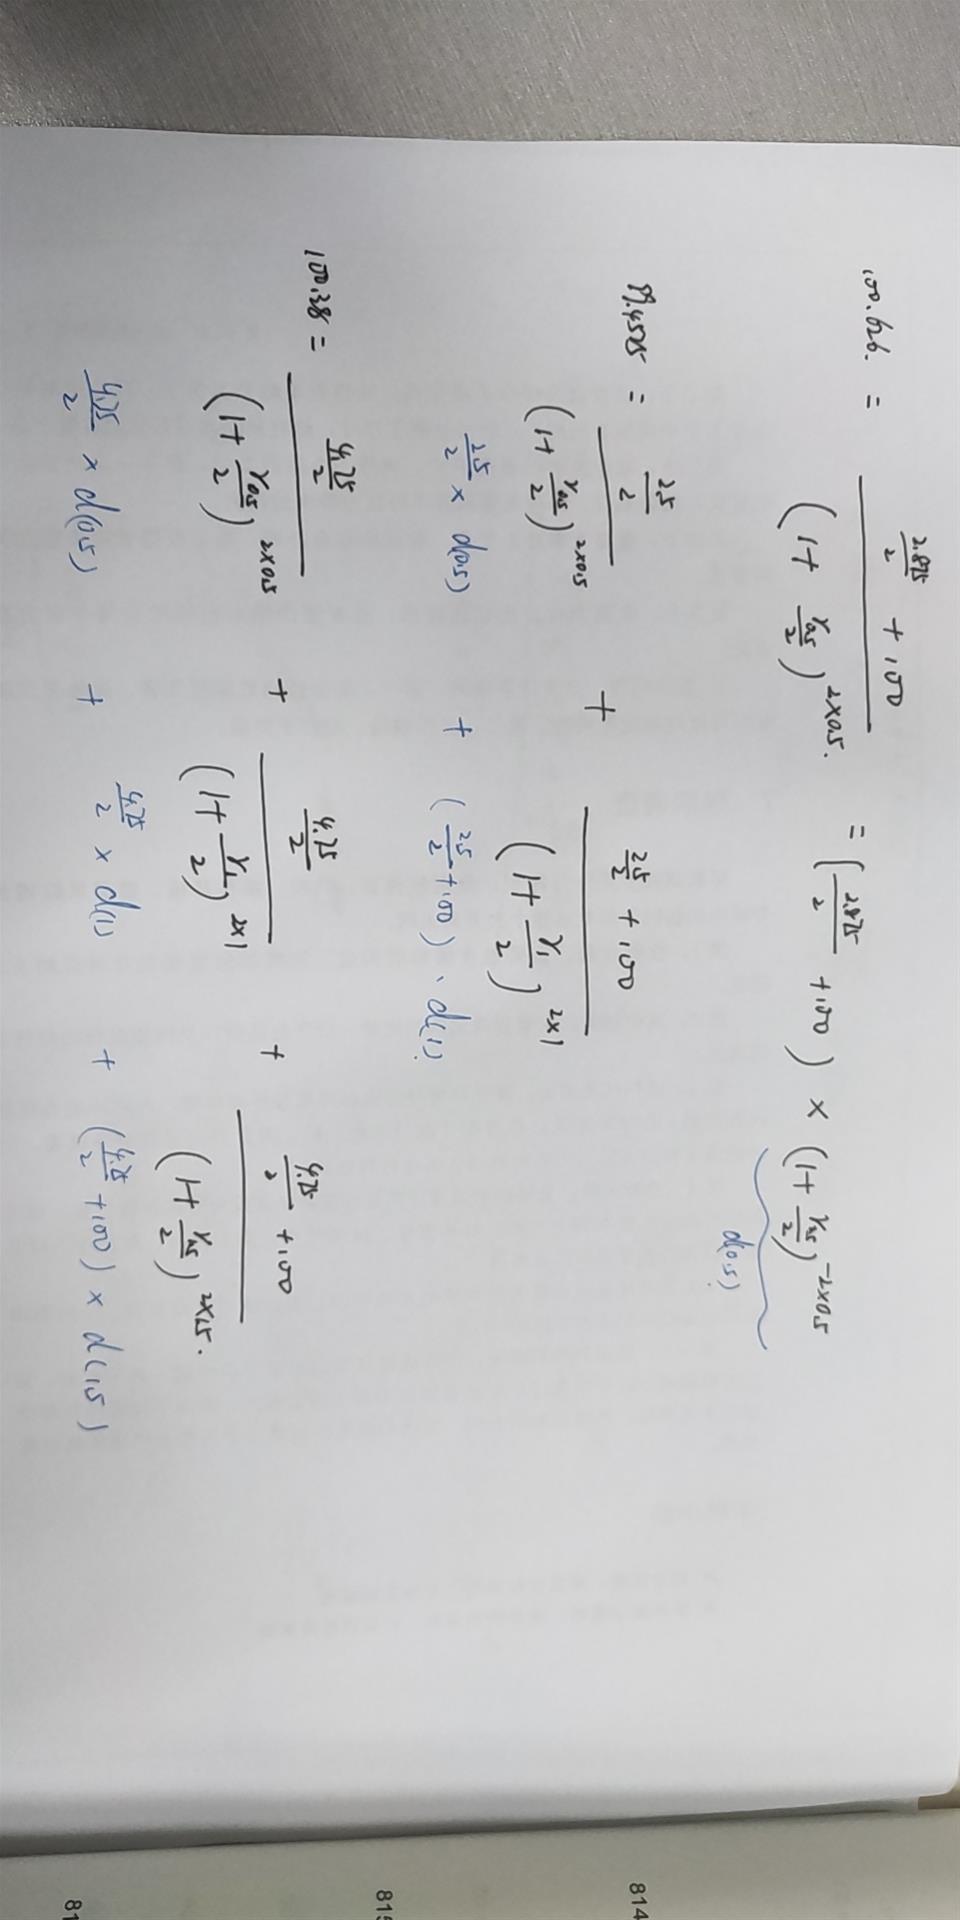 100.626. = (2.875/2 + 100) / (1 + γ0.5/2)^2×0.5. = (2.875/2 + 100) × (1 + γ0.5/2)^-2×0.5
d(0.5)
= (2.5/2) / (1 + γ0.5/2)^2×0.5 + (2.5/2 + 100) / (1 + γ1/2)^2×1
2.5/2 × d(0.5) + (2.5/2 + 100) · d(1)
100.38 = (4.25/2) / (1 + γ0.5/2)^2×0.5 + (4.25/2) / (1 + γ1/2)^2×1 + (4.25/2 + 100) / (1 + γ1.5/2)^2×1.5.
4.25/2 × d(0.5) + 4.25/2 × d(1) + (4.25/2 + 100) × d(1.5)
814
815